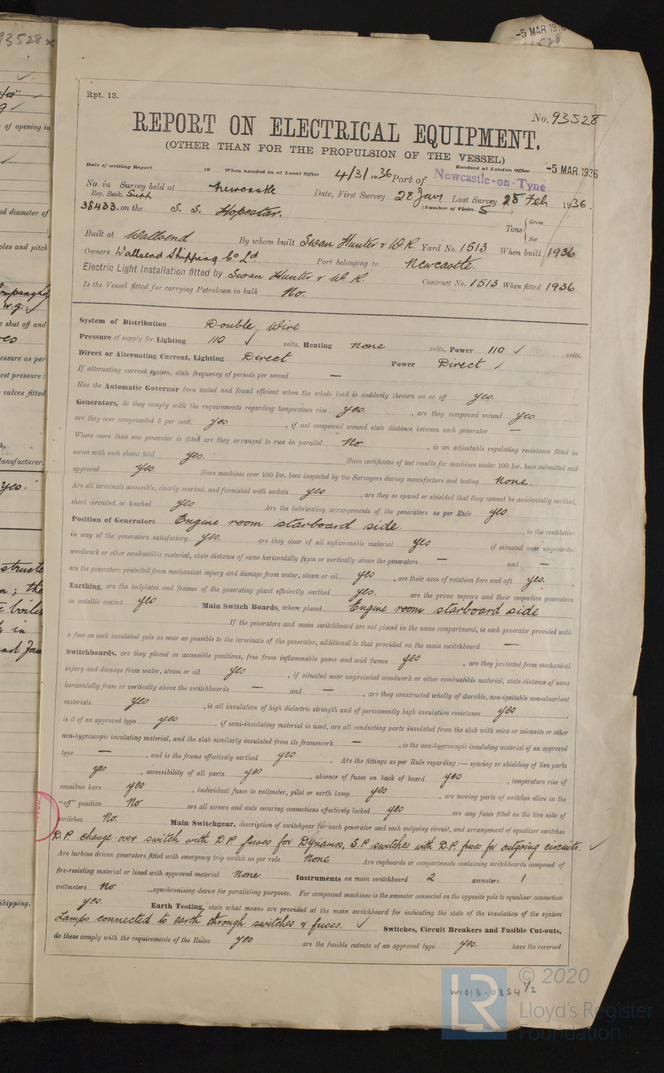 -5 MAR 1936
93528
Rpt. 13.
No. 93528
REPORT ON ELECTRICAL EQUIPMENT.
(OTHER THAN FOR THE PROPULSION OF THE VESSEL)
Date of writing Report 19 When handed in at Local Office 4/3/1936 Port of Newcastle-on-Tyne Received at London Office -5 MAR 1936
No. in Survey held at Newcastle Date, First Survey 28 Jany Last Survey 25 Feb 1936
Reg. Book. Supp (Number of Visits 5)
38433 on the S. S. Hopestar. Tons Gross Net
Built at Wallsend By whom built Swan Hunter & W.R. Yard No. 1513 When built 1936
Owners Wallsend Shipping Co Ld. Port belonging to Newcastle.
Electric Light Installation fitted by Swan Hunter & W R Contract No. 1513 When fitted 1936
Is the Vessel fitted for carrying Petroleum in bulk No.
System of Distribution Double Wire
Pressure of supply for Lighting 110 ✓ volts, Heating none volts, Power 110 ✓ volts.
Direct or Alternating Current, Lighting Direct Power Direct ✓
If alternating current system, state frequency of periods per second —
Has the Automatic Governor been tested and found efficient when the whole load is suddenly thrown on or off yes.
Generators, do they comply with the requirements regarding temperature rise yes. , are they compound wound yes
are they over compounded 5 per cent. yes , if not compound wound state distance between each generator —
Where more than one generator is fitted are they arranged to run in parallel No. , is an adjustable regulating resistance fitted in
series with each shunt field yes. Have certificates of test results for machines under 100 kw. been submitted and
approved yes. Have machines over 100 kw. been inspected by the Surveyors during manufacture and testing none.
Are all terminals accessible, clearly marked, and furnished with sockets yes , are they so spaced or shielded that they cannot be accidentally earthed,
short circuited, or touched yes Are the lubricating arrangements of the generators as per Rule yes.
Position of Generators Engine room starboard side , is the ventilation
in way of the generators satisfactory yes. are they clear of all inflammable material yes if situated near unprotected
woodwork or other combustible material, state distance of same horizontally from or vertically above the generators — and —
are the generators protected from mechanical injury and damage from water, steam or oil yes , are their axes of rotation fore and aft yes.
Earthing, are the bedplates and frames of the generating plant efficiently earthed yes. are the prime movers and their respective generators
in metallic contact yes Main Switch Boards, where placed Engine room starboard side
If the generators and main switchboard are not placed in the same compartment, is each generator provided with
a fuse on each insulated pole as near as possible to the terminals of the generator, additional to that provided on the main switchboard —
Switchboards, are they placed in accessible positions, free from inflammable gases and acid fumes yes , are they protected from mechanical
injury and damage from water, steam or oil yes , if situated near unprotected woodwork or other combustible material, state distance of same
horizontally from or vertically above the switchboards — and — , are they constructed wholly of durable, non-ignitable non-absorbent
materials yes , is all insulation of high dielectric strength and of permanently high insulation resistance yes
is it of an approved type yes , if semi-insulating material is used, are all conducting parts insulated from the slab with mica or micanite or other
non-hygroscopic insulating material, and the slab similarly insulated from its framework — , is the non-hygroscopic insulating material of an approved
type — , and is the frame effectively earthed yes . Are the fittings as per Rule regarding:— spacing or shielding of live parts
yes , accessibility of all parts yes , absence of fuses on back of board yes , temperature rise of
omnibus bars yes , individual fuses to voltmeter, pilot or earth lamp yes , are moving parts of switches alive in the
"off" position No are all screws and nuts securing connections effectively locked yes are any fuses fitted on the live side of
switches No. Main Switchgear, description of switchgear for each generator and each outgoing circuit, and arrangement of equaliser switches
D.P. change-over switch with D.P. fuses for Dynamos, S.P. switches with D.P. fuses for outgoing circuits. ✓
Are turbine driven generators fitted with emergency trip switch as per rule None Are cupboards or compartments containing switchboards composed of
fire-resisting material or lined with approved material None Instruments on main switchboard 2 ammeters 1
voltmeters No synchronising device for paralleling purposes. For compound machines is the ammeter connected on the opposite pole to equaliser connection
yes. Earth Testing, state what means are provided at the main switchboard for indicating the state of the insulation of the system
Lamps connected to earth through switches & fuses. ✓ Switches, Circuit Breakers and Fusible Cut-outs,
do these comply with the requirements of the Rules yes are the fusible cutouts of an approved type yes. have the reversed
W1013-0354 1/2
© 2020
Lloyd's Register
Foundation
LR